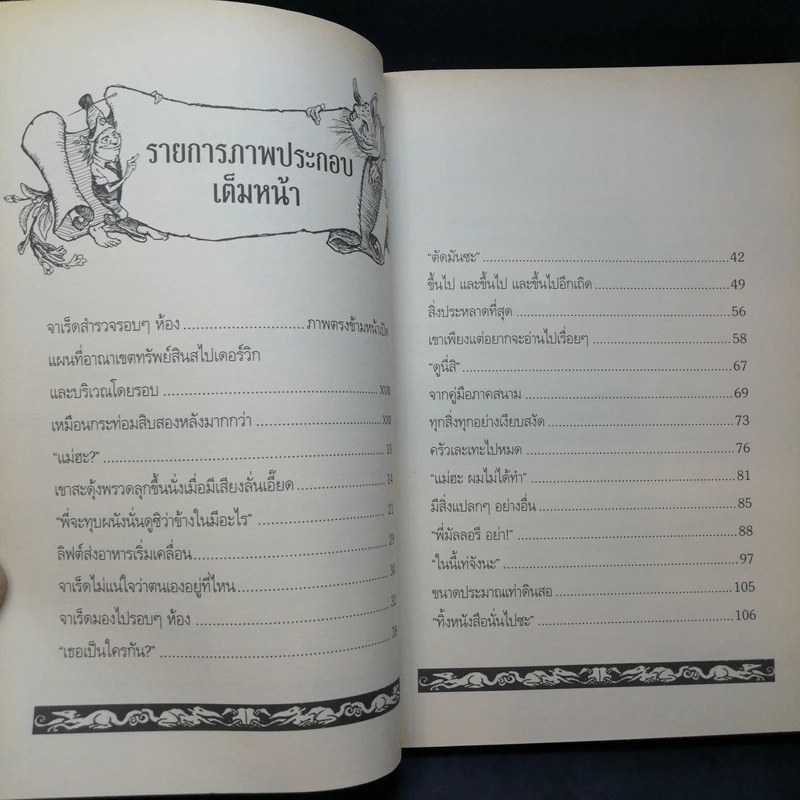 รายการภาพประกอบ
เต็มหน้า
จาเร็ดสำรวจรอบๆ ห้อง ................................ ภาพตรงข้ามหน้าเปิด
แผนที่อาณาเขตทรัพย์สินสไปเดอร์วิก
และบริเวณโดยรอบ ................................
เหมือนกระท่อมสิบสองหลังมากกว่า ................................
"แม่ฮะ?" ................................ 10
เขาสะดุ้งพรวดลุกขึ้นนั่งเมื่อมีเสียงลั่นเอี๊ยด ................................ 14
"พี่จะทุบผนังนั่นดูซิว่าข้างในมีอะไร" ................................ 21
ลิฟต์ส่งอาหารเริ่มเคลื่อน ................................ 29
จาเร็ดไม่แน่ใจว่าตนเองอยู่ที่ไหน ................................ 30
จาเร็ดมองไปรอบๆ ห้อง ................................ 32
"เธอเป็นใครกัน?" ................................ 38
"ตัดมันซะ" ................................ 42
ขึ้นไป และขึ้นไป และขึ้นไปอีกเถิด ................................ 49
สิ่งประหลาดที่สุด ................................ 56
เขาเพียงแต่อยากจะอ่านไปเรื่อยๆ ................................ 58
"ดูนี่สิ" ................................ 67
จากคู่มือภาคสนาม ................................ 69
ทุกสิ่งทุกอย่างเงียบสงัด ................................ 73
ครัวเละเทะไปหมด ................................ 76
"แม่ฮะ ผมไม่ได้ทำ" ................................ 81
มีสิ่งแปลกๆ อย่างอื่น ................................ 85
"พี่มัลลอรี อย่า!" ................................ 88
"ในนี้เท่จังนะ" ................................ 97
ขนาดประมาณเท่าดินสอ ................................ 105
"ทิ้งหนังสือนั่นไปซะ" ................................ 106